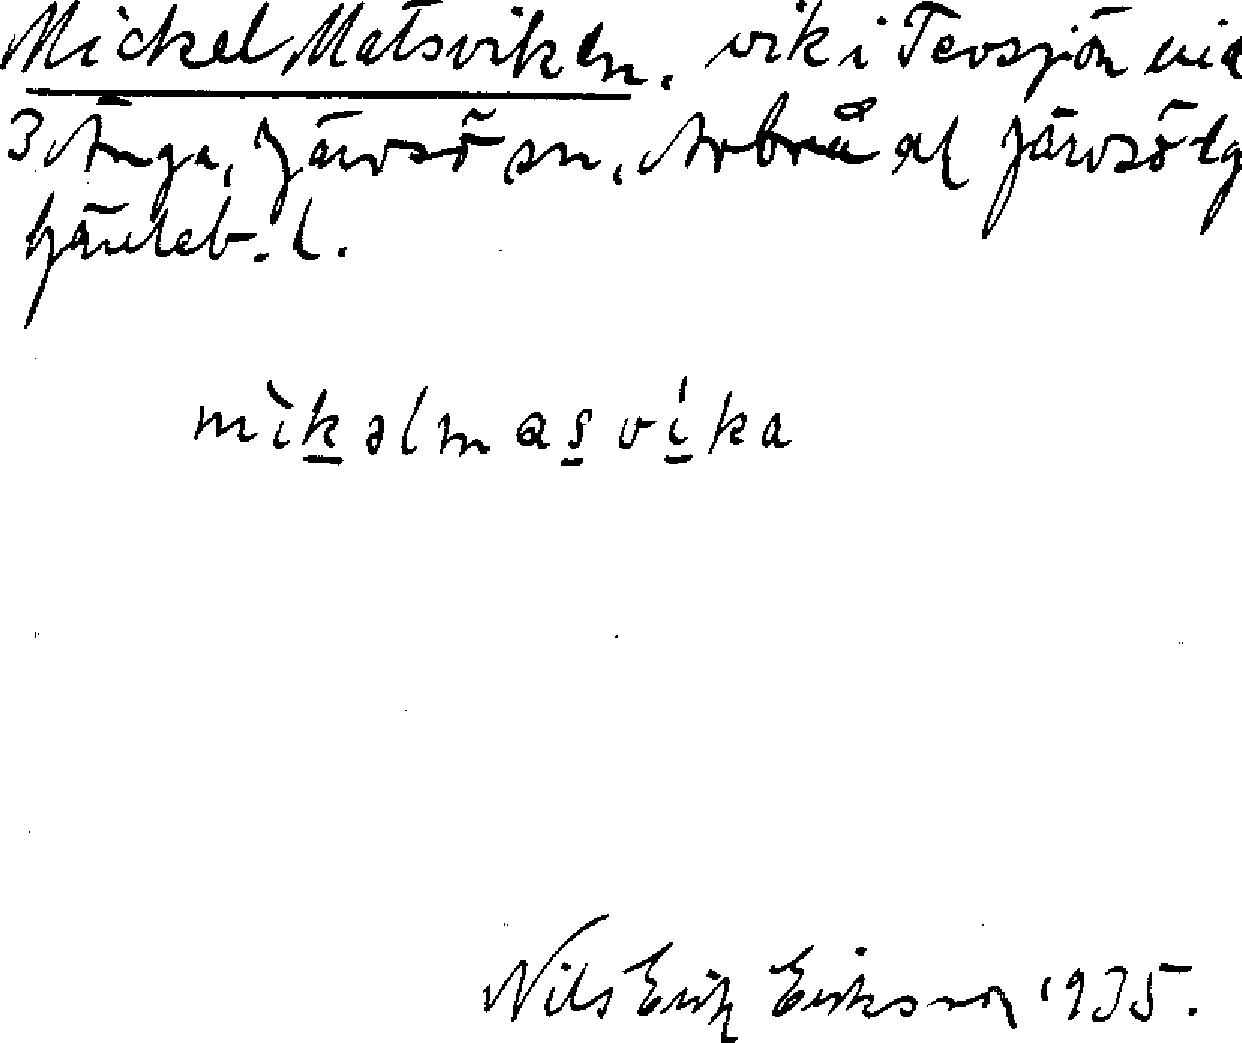 Mickel Matsviken, vik i Tevsjön vid
3 Änga, Järvsö sn, Arbrå o Järvsö tg
Gävleb. l.
mìkəlmasvíka
Nils Erik Eriksson 1935.